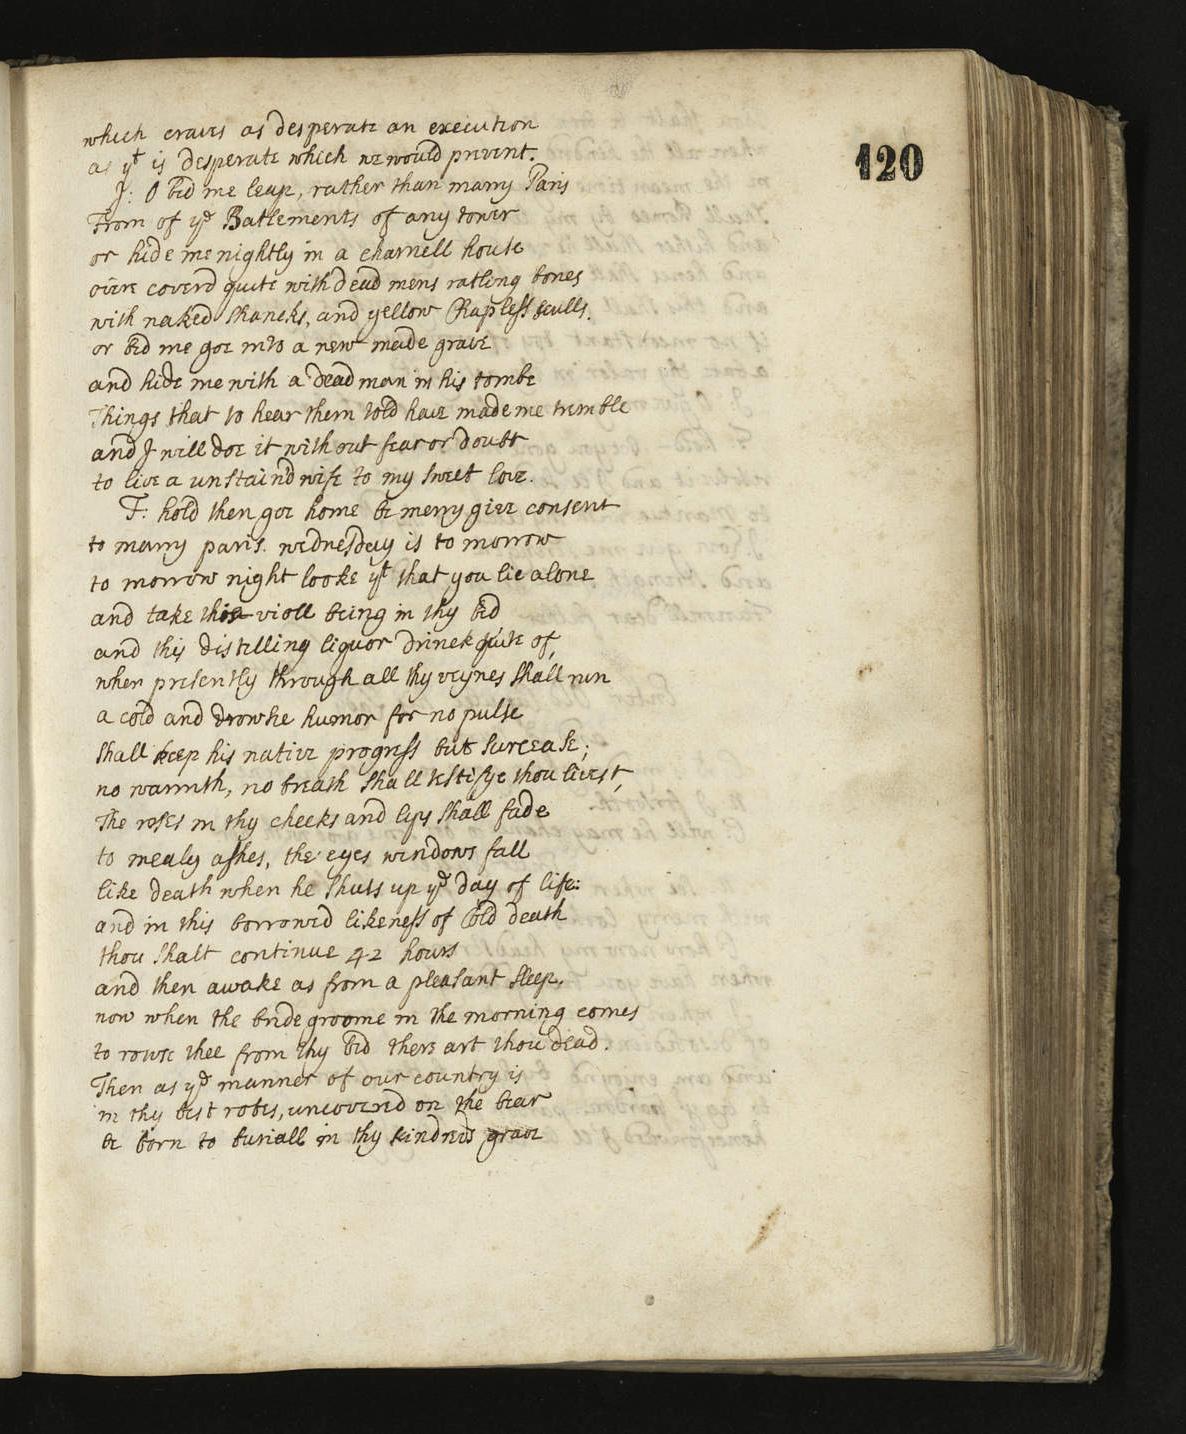 120
which craves as desperate an execution
as yt is desperate which we would prevent.
J: O bid me leap, rather than marry Paris
From of ye Batlements of any tower
or hide me nightly in a charnell house
overe coverd quite with dead mens ratling bones
with naked Shancks, and yellow Chapless sculls.
or bid me goe into a new made grave
and hide me with a dead man in his tombe
Things that to hear them told have made me tremble
and I will doe it without fear or doubt
to live a unstaind wife to my sweet love.
F: hold then goe home be merry give consent
to marry paris. wednesday is to morrow
to morrow night looke yt that you lie alone
and take this violl being in thy bed
and this distilling liquor drinck quite of,
when presently through all thy veynes Shall run
a cold and drowsie humor for no pulse
Shall keep his native progress but surcease;
no warmth, no breath Shall testifye thou livest,
The roses in thy cheeks and lips Shall fade
to mealy ashes, the eyes windows fall
like death when he Shuts up ye day of life:
and in this borrowed likeness of Cold death
thou Shalt continue 42 hours
and then awake as from a pleasant Sleep.
now when the bridegroome in the morning comes
to rowse thee from thy bed there art thou dead.
Then as ye manner of our country is
in thy best robes, uncovered on the bear
be born to buriall in thy kindreds grave